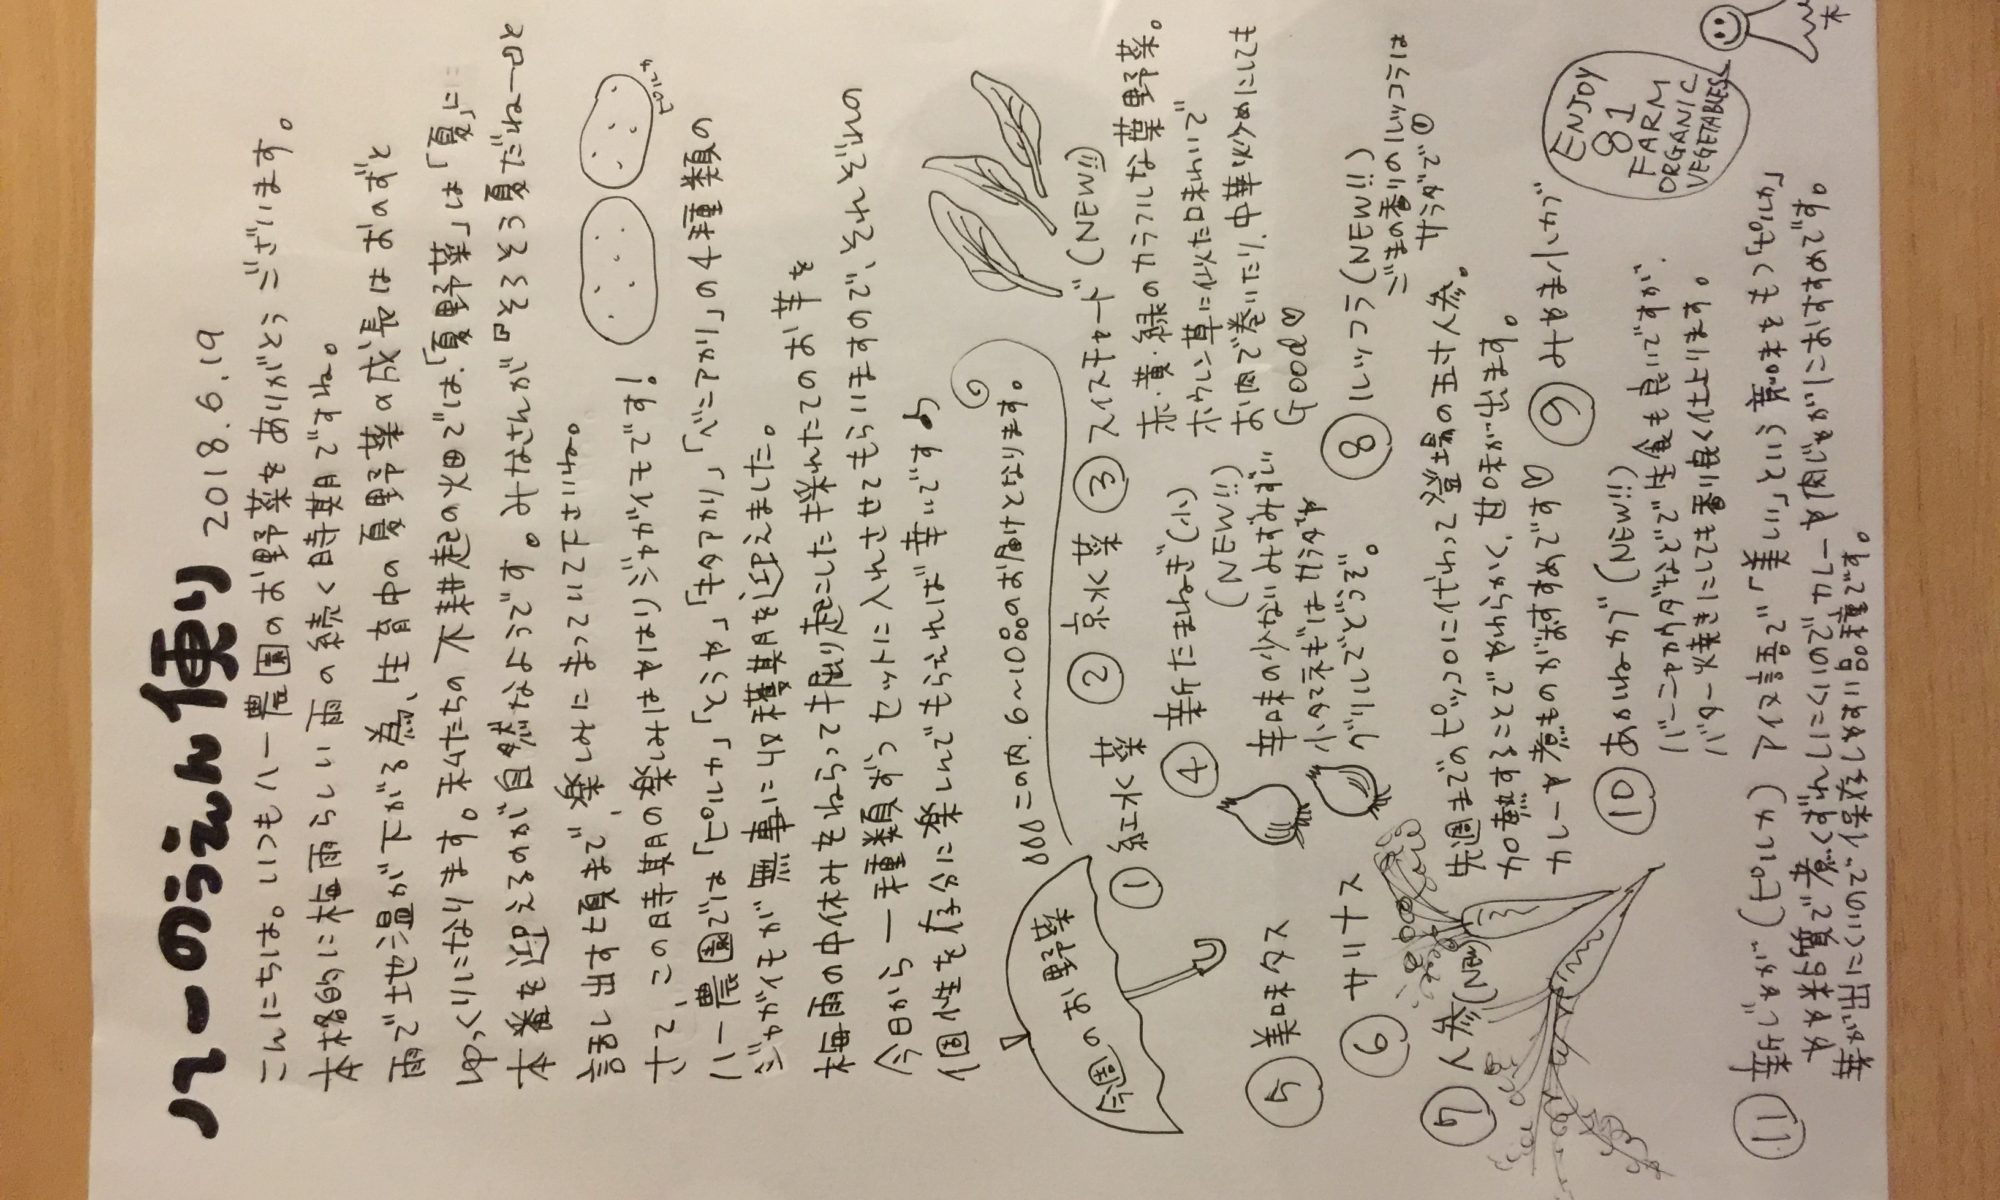 ハーのうえん便り 2018.6.19
こんにちは。いつもハー農園のお野菜をありがとうございます。
本格的に梅雨らしい雨の続く時期ですね。
雨で土地温が下がる為、生育中の夏野菜の成長はおのずと
ゆっくりになります。私たちの不耕起の畑では、「夏野菜」は「夏」に
本番を迎えるのが自然なようです。みなさんが『そろそろ夏だねー』と
話し出す頃まで、楽しみにまっていて下さいね。
さて、この時期の楽しみはやはりジャガイモです!
ピルカ
ハー農園では「ピルカ」「とうや」「キタアカリ」「ベニアカリ」の4種類の
ジャガイモが無事に収穫期を迎えました。
梅雨の中休みをねらって掘り起こした採れたてのお芋を
今日から一種類ずつセットに入れさせてもらいますので、それぞれの
個性を存分に楽しんでもらえれば幸いです♪
今週のお野菜
この内、6~10品のお届けとなります。
① 紅水菜 ② 京水菜 ③ スイスチャード(NEW!!)
赤・黄・緑のカラフルな葉野菜。
ホウレン草に似た味わいで
お肉で巻いたり、中華炒めにしても
Good
④ 新たまねぎ(小)
(NEW!!)
辛味の少ないみずみずしい
小タマネギはサラダや
グリルでどうぞ。
⑤ 美味タス
⑥ サリナス
⑧ ルッコラ(NEW!!)
ごまの香りのルッコラは
サラダで
⑦ 人参(NEW)
先週までのピッコロに代わって登場の五寸人参。
加熱することでやわらかく、甘味が出ます。
カレーや煮ものがおすすめです
⑨ みやま小カブ
⑩ あかねカブ(NEW!!)
バーニャカウダなどで生食も良いですが、
バター焼きにしても香り良く仕上ります。
⑪ 新じゃが(ピルカ) アイヌ語で「美しい」という意味をもつ「ピルカ」
やや粉質で煮くずれしにくいのでカレーや肉じゃがにおすすめです。
芽が出にくいので、保存がきく珍しい品種です。
ENJOY
81
FARM
ORGANIC
VEGETABLES